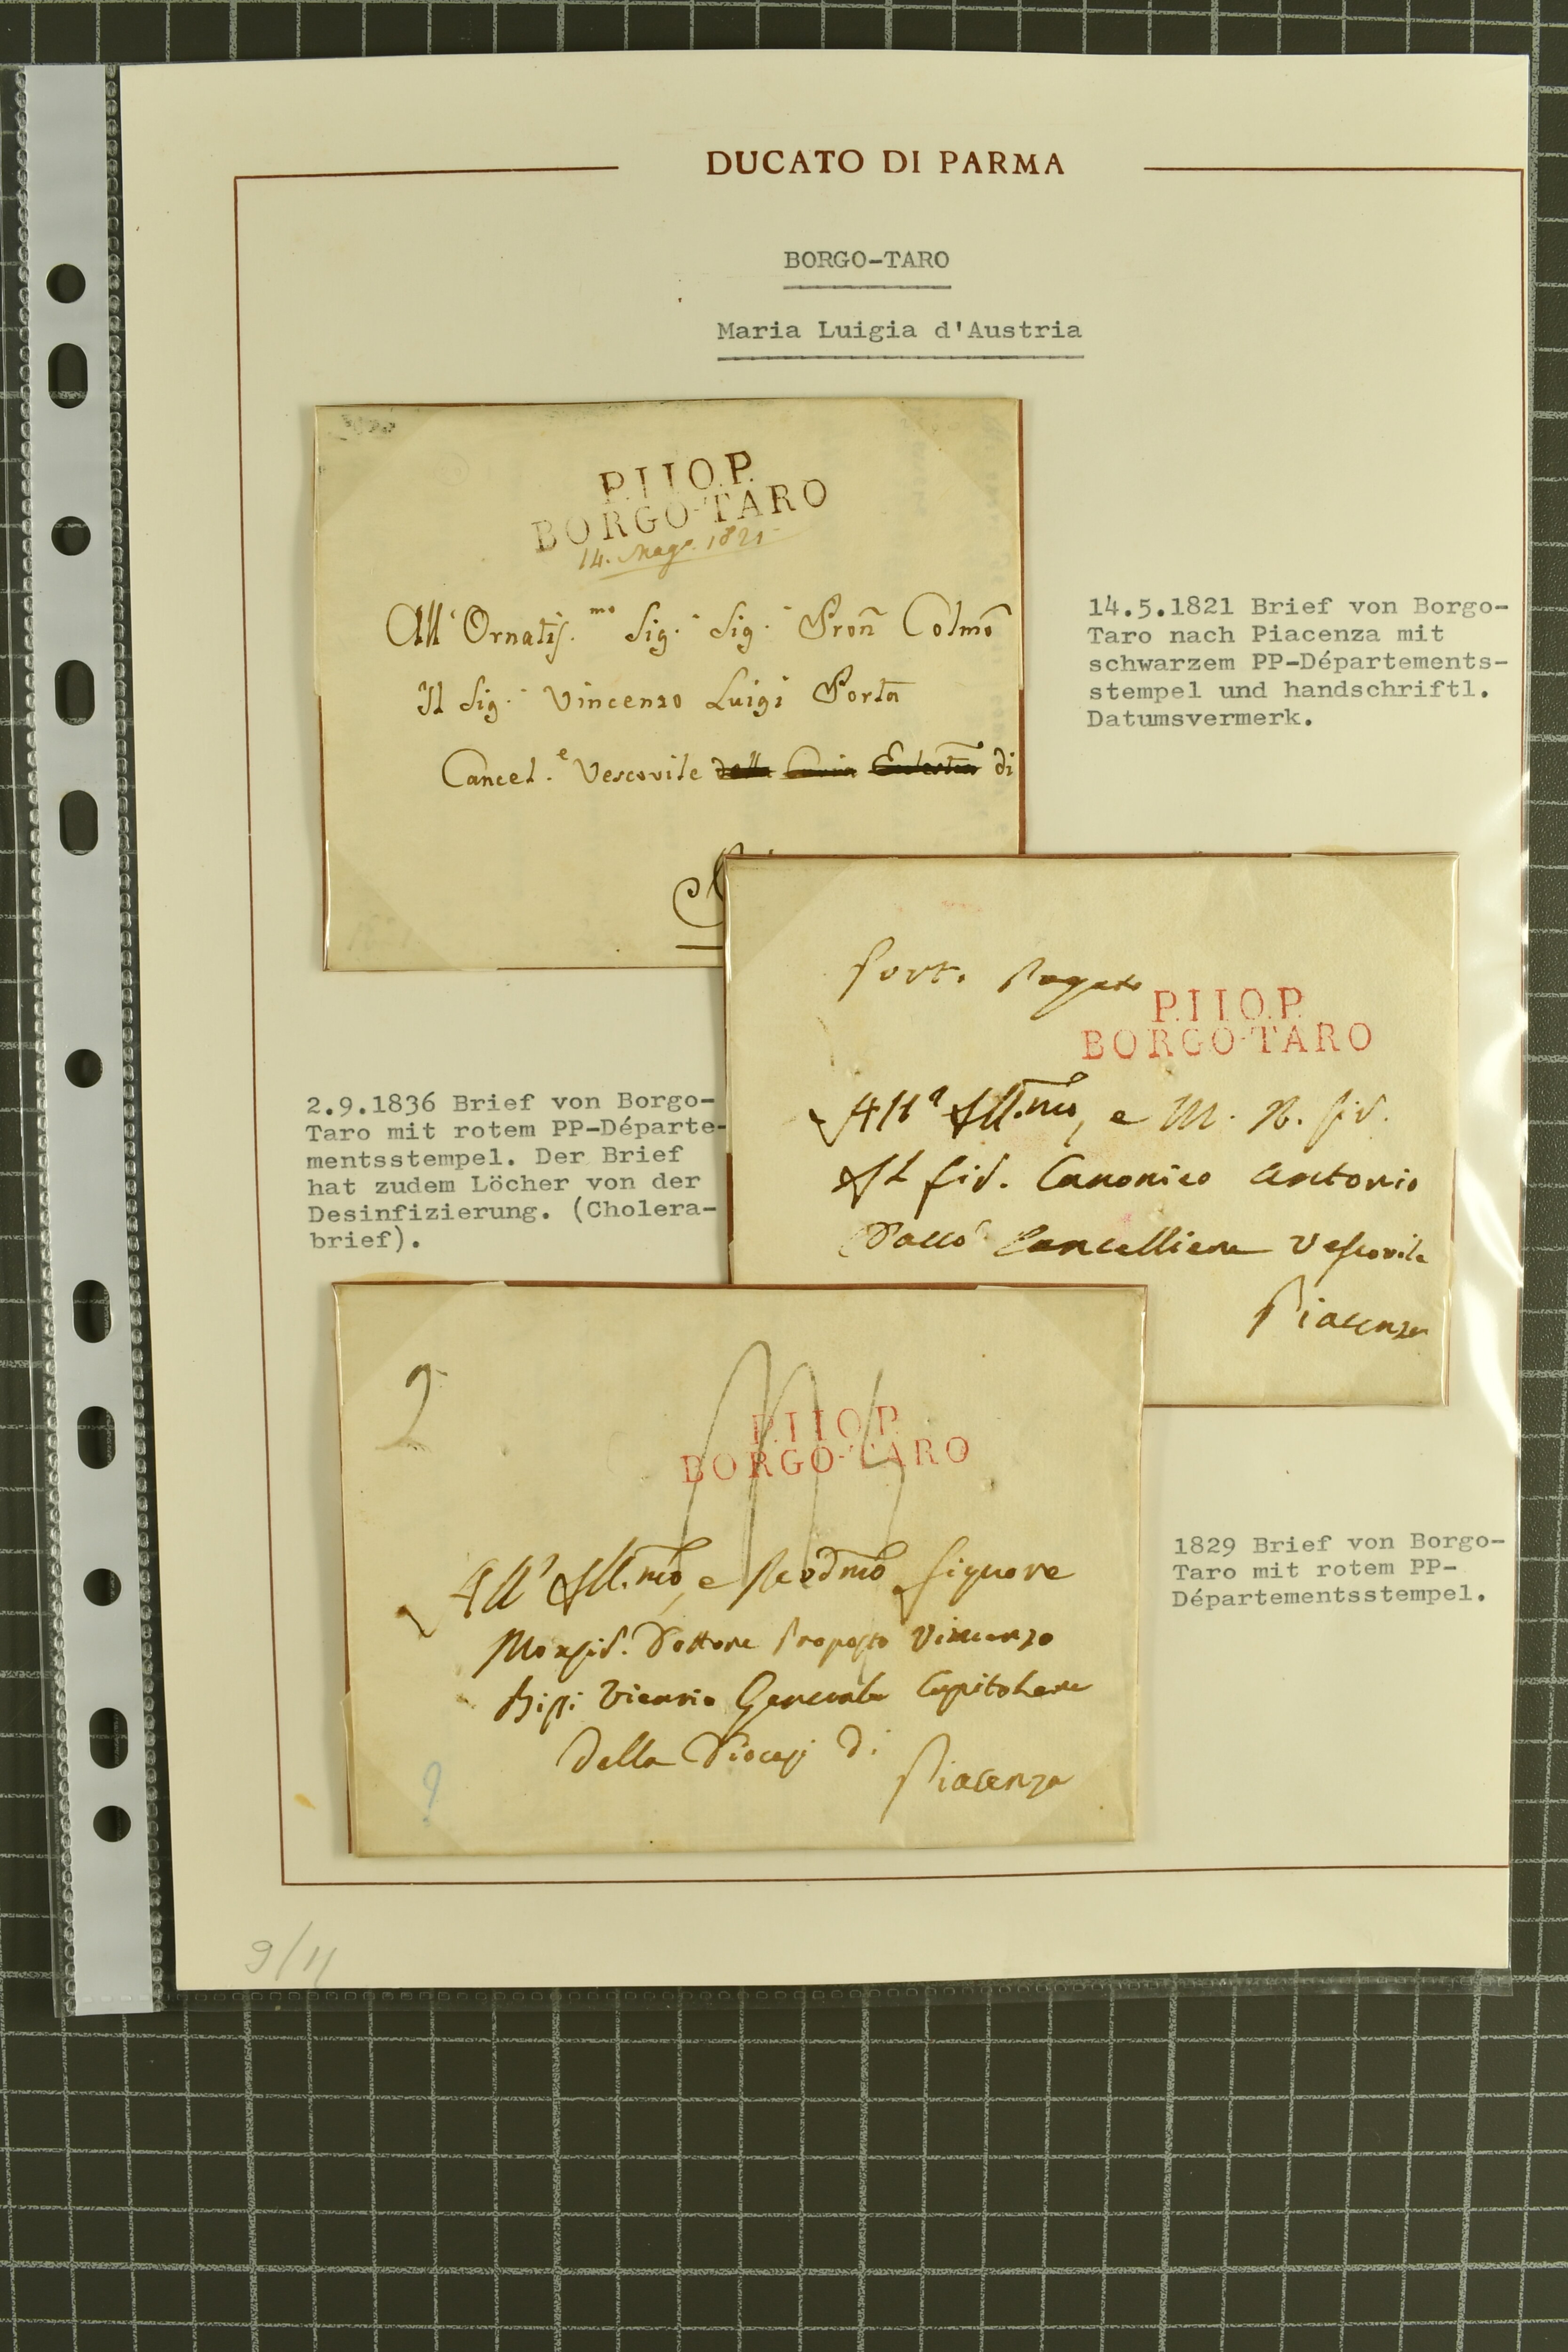 DUCATO DI PARMA
BORGO-TARO
Maria Luigia d'Austria
P.110.P.
BORGO-TARO
14. Mag.º 1821
All' Ornatis.mo Sig. Sig. Pron Colmo
Il Sig. Vincenzo Luigi Porta
Cancel.e Vescovile di
14.5.1821 Brief von Borgo-
Taro nach Piacenza mit
schwarzem PP-Départements-
stempel und handschriftl.
Datumsvermerk.
Porto Pagato
P.110.P.
BORGO-TARO
All' Ill.mo, e M. R. Sig.
Il Sig. Canonico Antonio
Cancelliere Vescovile
Piacenza
2.9.1836 Brief von Borgo-
Taro mit rotem PP-Départe-
mentsstempel. Der Brief
hat zudem Löcher von der
Desinfizierung. (Cholera-
brief).
2
P.110.P.
BORGO-TARO
All' Ill.mo, e Revdmo Signore
Monsig. Dottore Proposto Vincenzo
Vicario Generale Capitolare
della Diocesi di
Piacenza
1829 Brief von Borgo-
Taro mit rotem PP-
Départementsstempel.
9/11